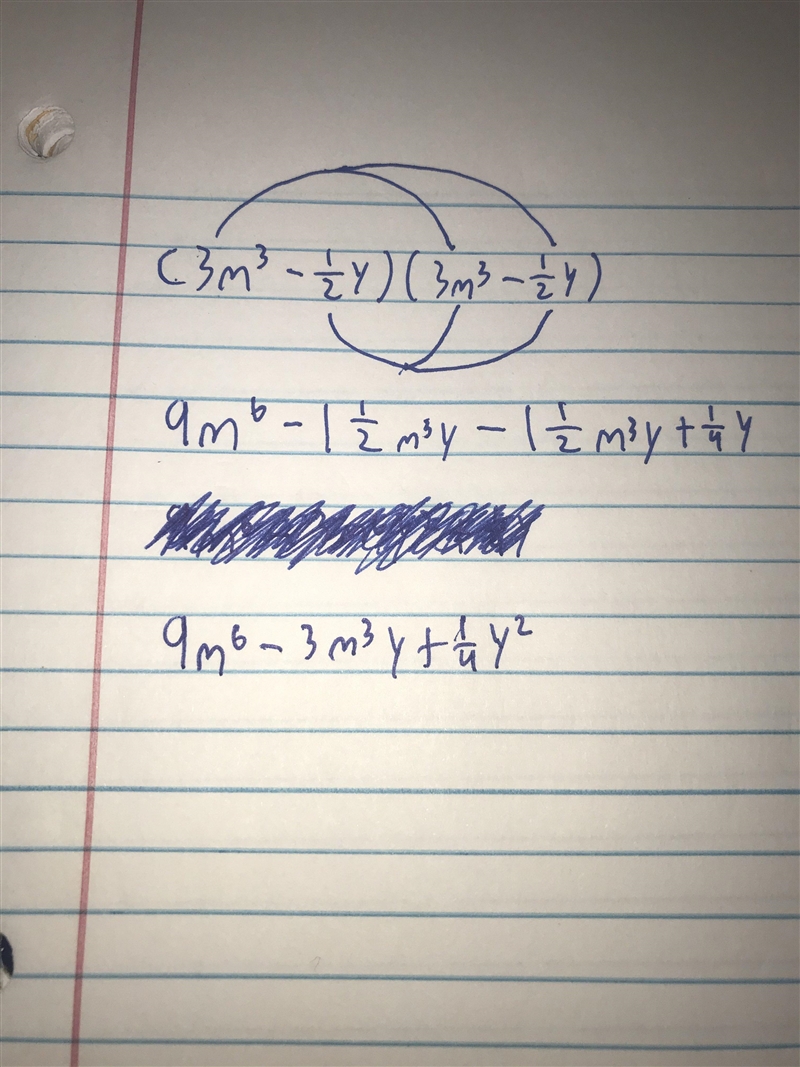 (3m³ - 1/2 y)(3m³ - 1/2 y)
9m⁶ - 1 1/2 m³y - 1 1/2 m³y + 1/4 y
9m⁶ - 3m³y + 1/4 y²